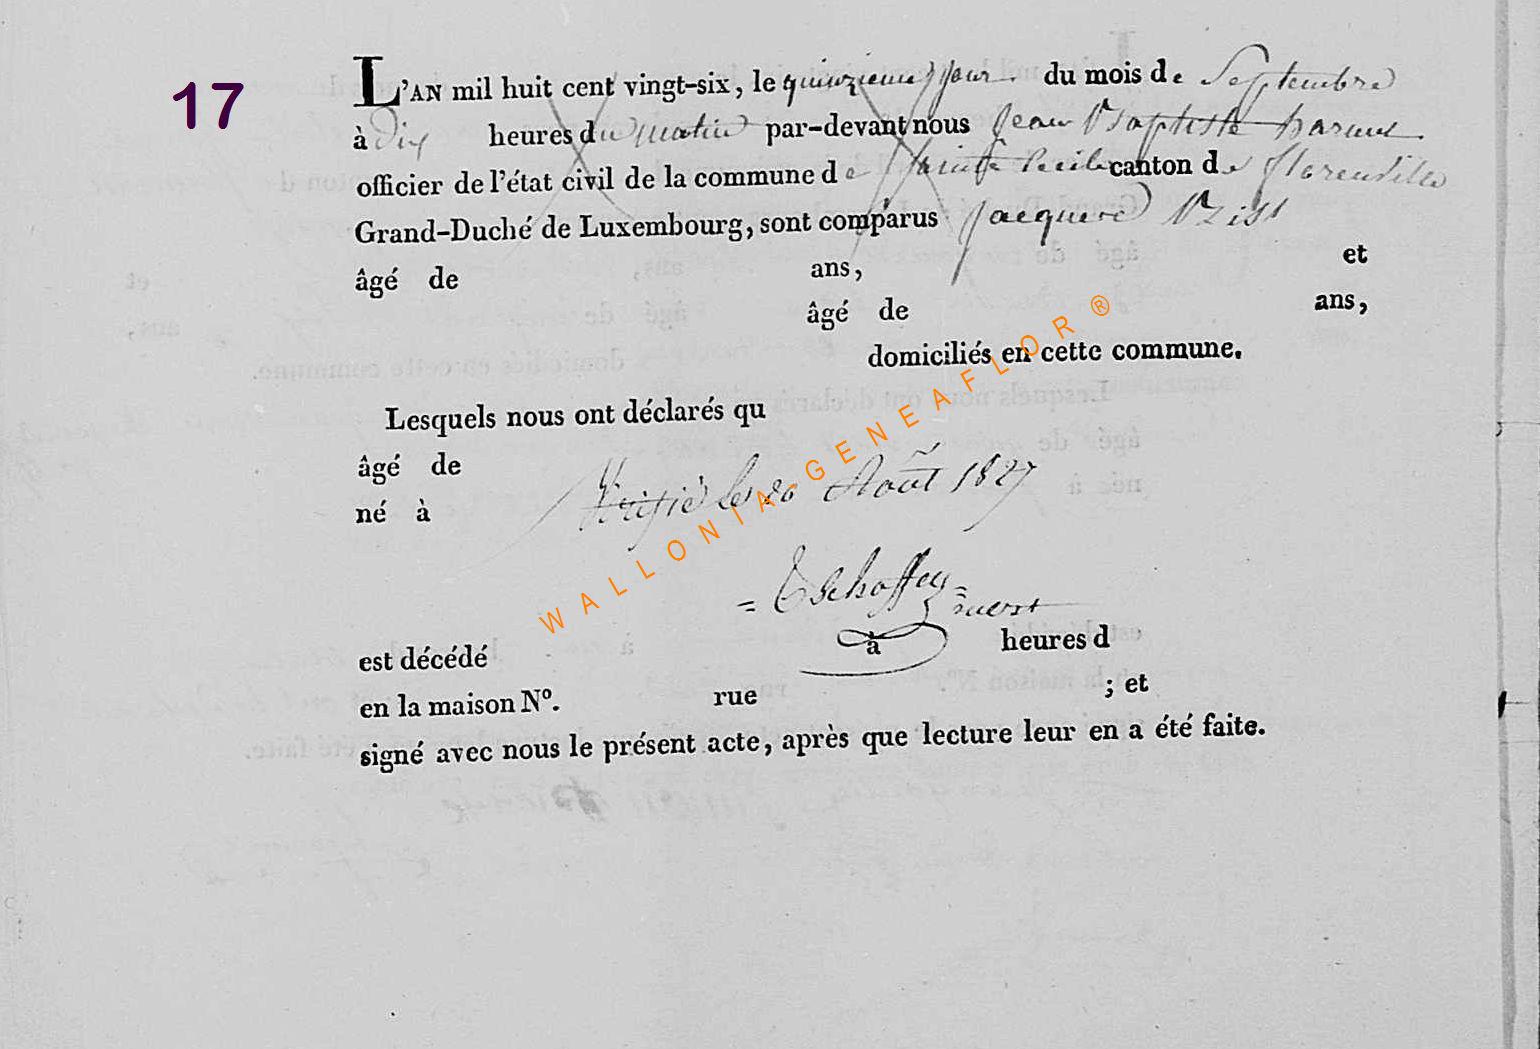 17
L'AN mil huit cent vingt-six, le quinzieme jour du mois de Septembre
à Dix heures du matin par-devant nous Jean Baptiste
officier de l'état civil de la commune de Sainte Cecile canton de florenville
Grand-Duché de Luxembourg, sont comparus Jacques
âgé de ans, et
âgé de ans,
domiciliés en cette commune.
Lesquels nous ont déclarés qu
âgé de
né à
Vérifié le 20 Août 1827
= Tschoffen =
est décédé à heures d
en la maison N°. rue ; et
signé avec nous le présent acte, après que lecture leur en a été faite.
WALLONIA GENEAFLOR ®